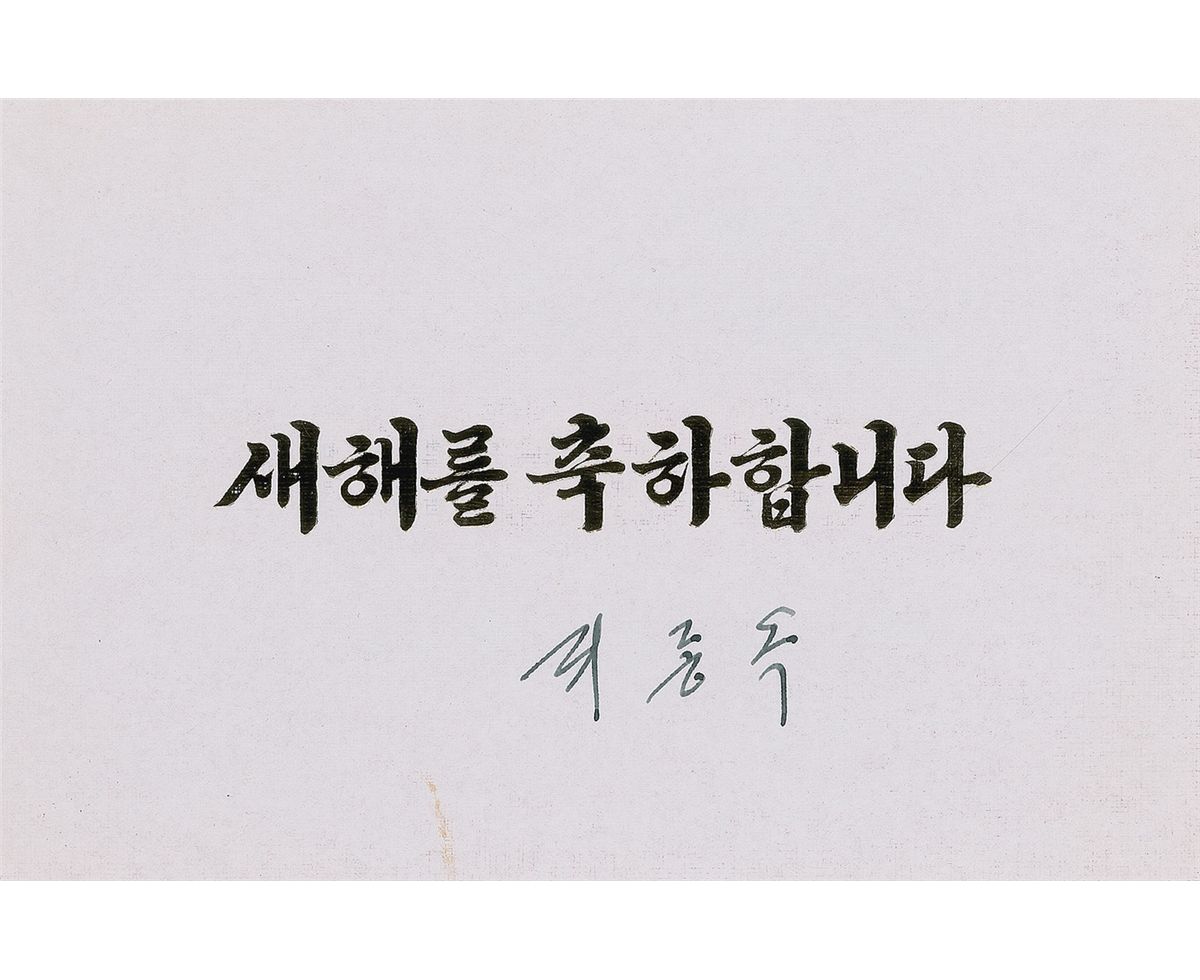 새해를 축하합니다